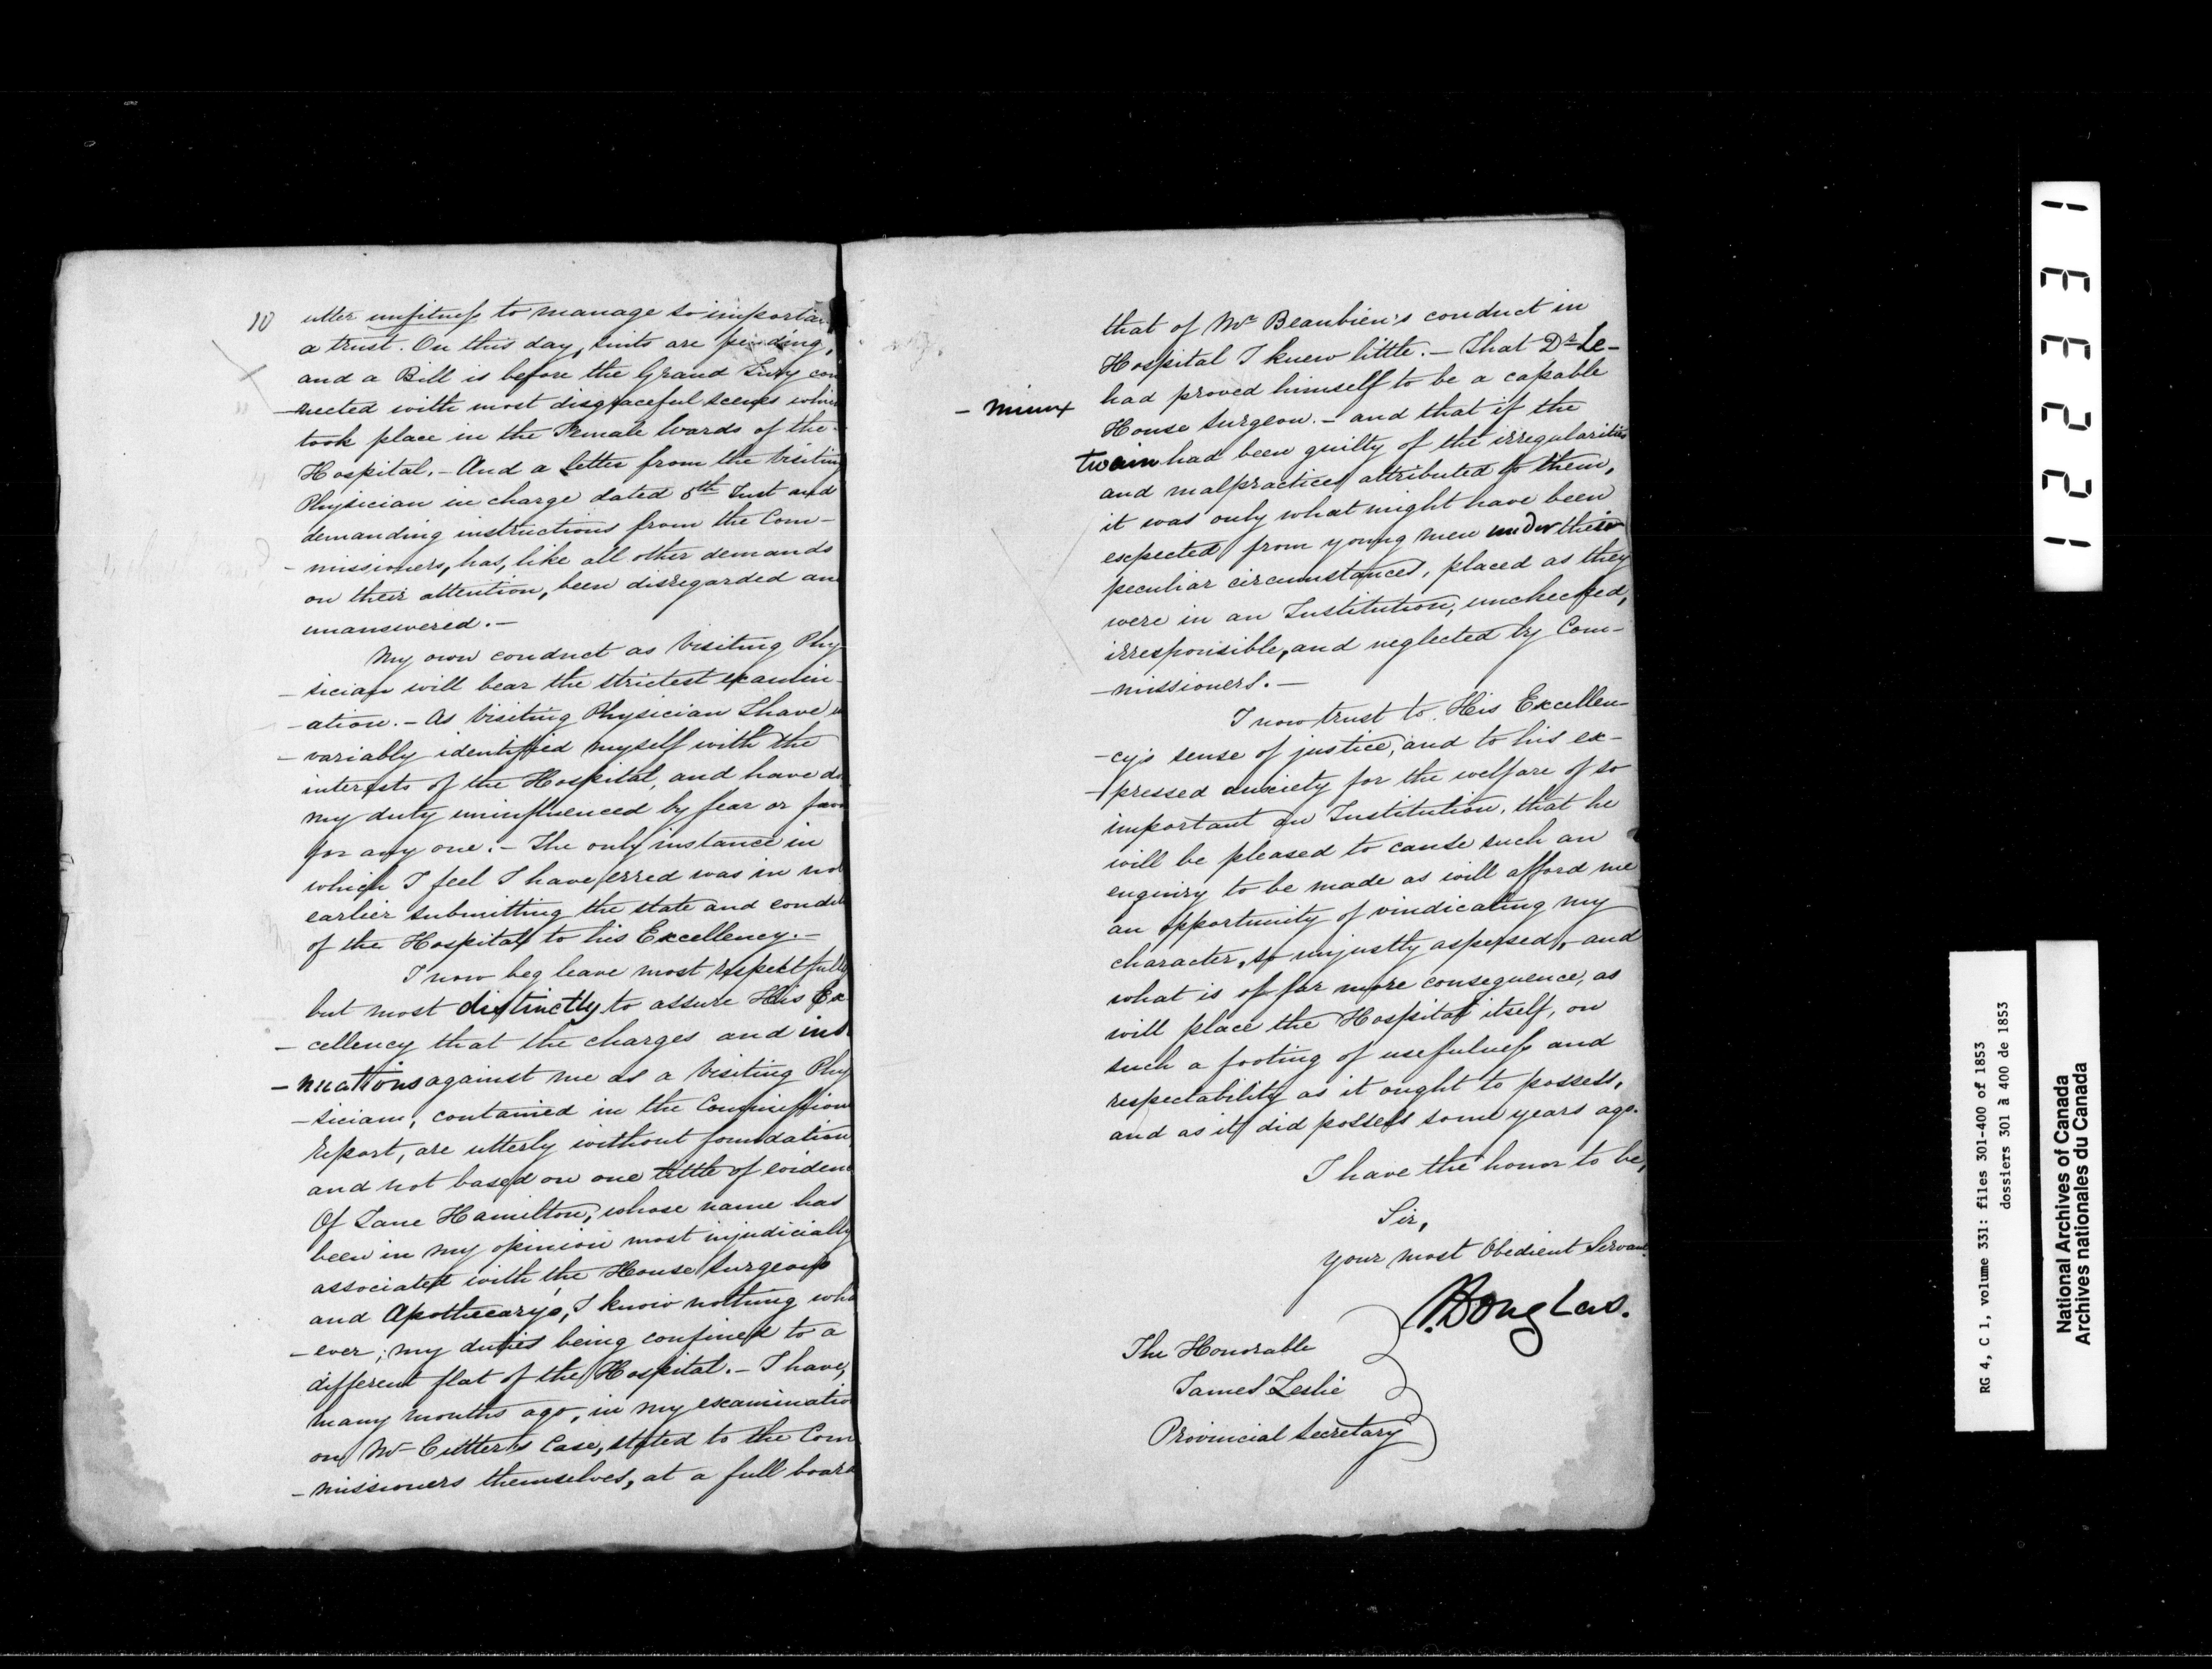 10
utter unfitness to manage so importan
a trust. On this day, suits are pending,
and a Bill is before the Grand Jury con
-nected with most disgraceful scenes which
took place in the Female Wards of the
Hospital. - And a letter from the Visiting
Physician in charge dated 5th Inst and
demanding instructions from the Com-
-missioners, has, like all other demands
on their attention, been disregarded an
unanswered. -
My own conduct as Visiting Phy
-sician will bear the strictest examin-
-ation. - As Visiting Physician I have in
-variably identified myself with the
interests of the Hospital, and have do
my duty uninfluenced by fear or favo
for any one. - The only instance in
which I feel I have erred was in not
earlier submitting the state and condit
of the Hospital to his Excellency. -
I now beg leave most respectfully
but most distinctly to assure His Ex
-cellency that the charges and insi
-nuations against me as a Visiting Phy
-sician, contained in the Commission
Report, are utterly without foundation
and not based on one tittle of eviden
Of Jane Hamilton, whose name has
been in my opinion most injudicially
associated with the House Surgeons
and Apothecarys, I know nothing wha
-ever; my duties being confined to a
different flat of the Hospital. - I have,
many months ago, in my examinatio
on Mr Cutter's Case, stated to the Com
-missioners themselves, at a full board
that of Mr Beaubien's conduct in
Hospital I knew little. - That Dr Le-
-mieux had proved himself to be a capable
House Surgeon. - and that if the
twain had been guilty of the irregularities
and malpractices attributed to them,
it was only what might have been
expected from young men under their
peculiar circumstances, placed as they
were in an Institution, unchecked,
irresponsible, and neglected by Com-
-missioners. -
I now trust to His Excellen-
-cy's sense of justice, and to his ex-
-pressed anxiety for the welfare of so
important an Institution, that he
will be pleased to cause such an
enquiry to be made as will afford me
an opportunity of vindicating my
character, so unjustly aspersed, - and
what is of far more consequence, as
will place the Hospital itself, on
such a footing of usefulness and
respectability as it ought to possess,
and as it did possess some years ago.
I have the honor to be,
Sir,
your most Obedient Servant
Douglas.
The Honorable
James Leslie
Provincial Secretary
122331
RG 4, C 1, volume 331: files 301-400 of 1853
dossiers 301 à 400 de 1853
National Archives of Canada
Archives nationales du Canada